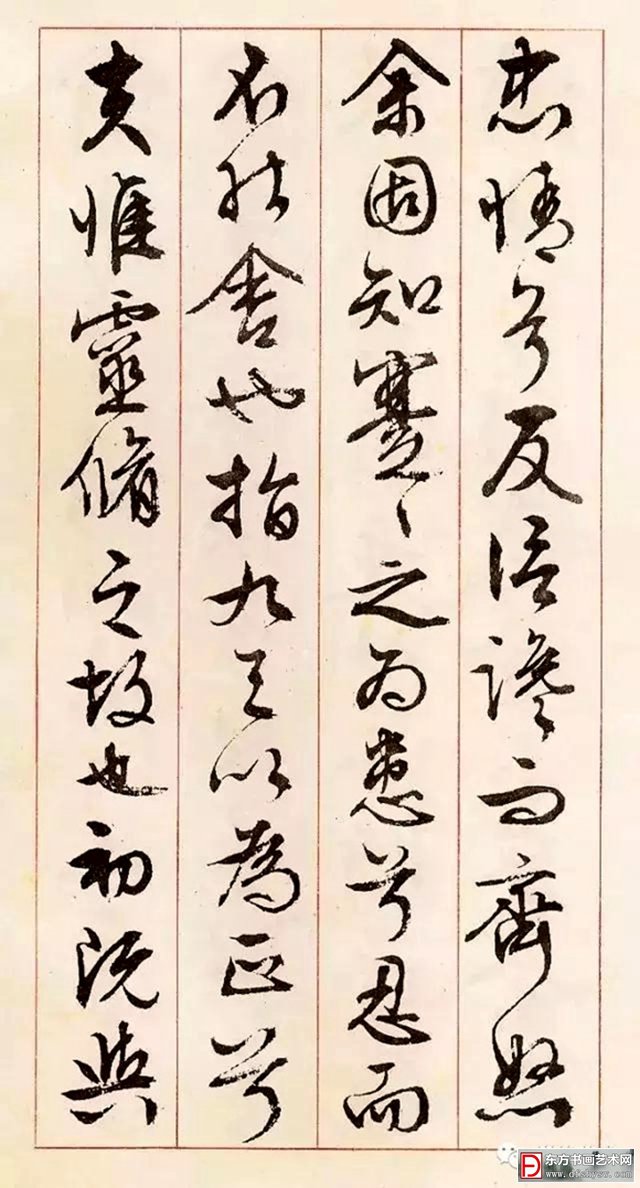 忠情兮反信谗而齊怒
余固知謇〻之为患兮忍而
不能舍也指九天以為正兮
夫惟靈脩之故也初既與
东方书画艺术网
www.dfshysw.com